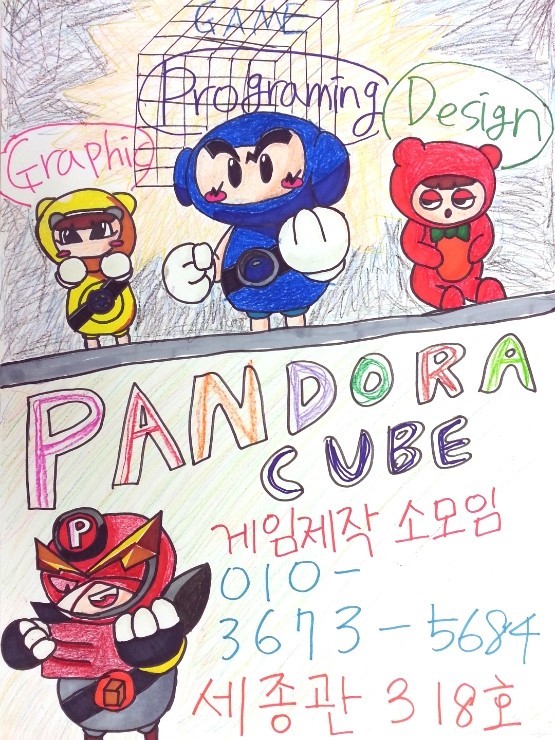 GAME
Programing
Design
Graphic
PANDORA
CUBE
게임제작 소모임
010-
3673-5684
세종관 318호
P